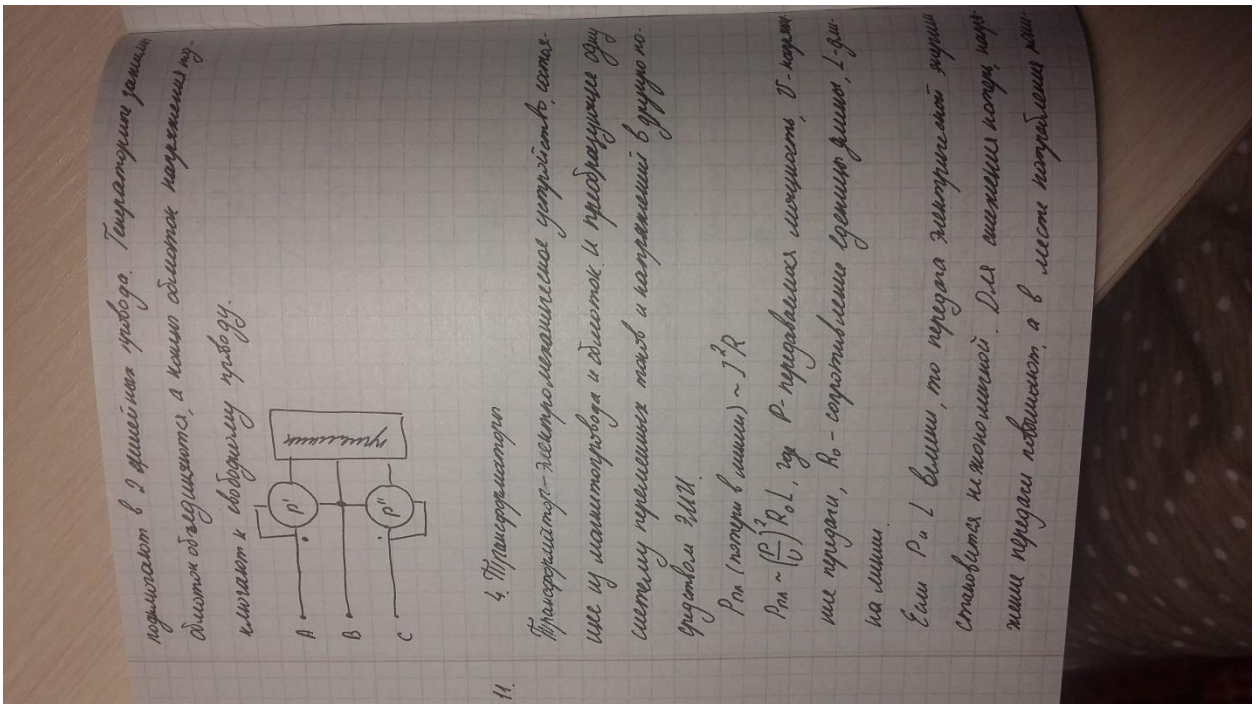 подключают в 2 линейных провода. Генераторные зажимы
обмоток объединяются, а концы обмоток напряжения под-
ключают к свободному проводу.
A
B
C
P'
P"
приемник
11.
4. Трансформаторы
Трансформатор - электромеханическое устройство, состоя-
щее из магнитопровода и обмоток и преобразующее одну
систему переменных токов и напряжений в другую по-
средством ЭМИ.
Pпл (потери в линии) ~ J²R
Pпл ~ (P/U)² R₀L, где P - передаваемая мощность, U - напряже-
ние передачи, R₀ - сопротивление единицы длины, L - дли-
на линии.
Если P и L велики, то передача электрической энергии
становится неэкономичной. Для снижения потерь, напря-
жение передачи повышают, а в месте потребления пони-